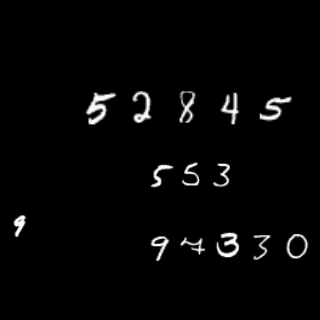 52845
553
9
97330